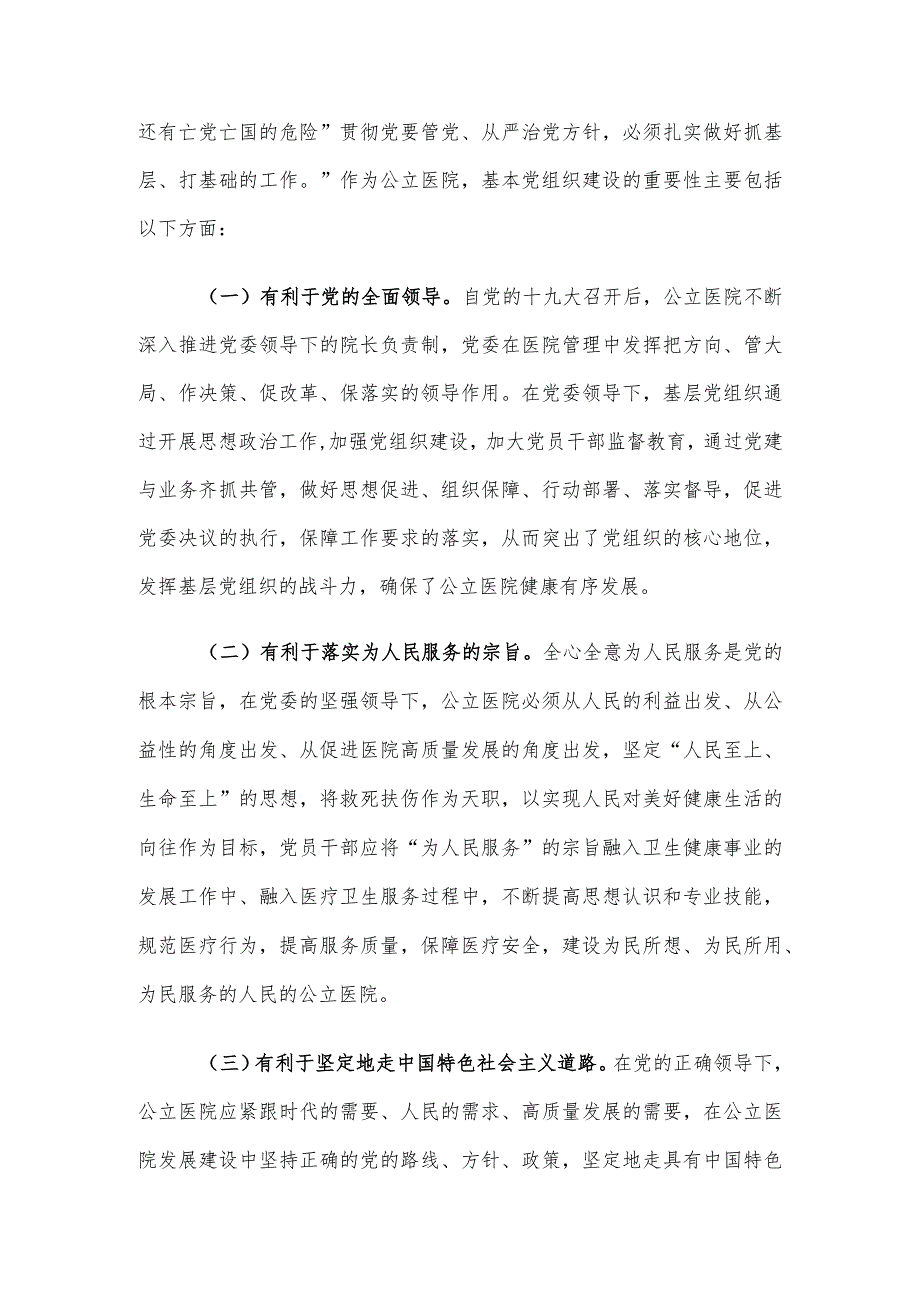 还有亡党亡国的危险”贯彻党要管党、从严治党方针，必须扎实做好抓基
层、打基础的工作。”作为公立医院，基本党组织建设的重要性主要包括
以下方面：
（一）有利于党的全面领导。自党的十九大召开后，公立医院不断
深入推进党委领导下的院长负责制，党委在医院管理中发挥把方向、管大
局、作决策、促改革、保落实的领导作用。在党委领导下，基层党组织通
过开展思想政治工作,加强党组织建设，加大党员干部监督教育，通过党建
与业务齐抓共管，做好思想促进、组织保障、行动部署、落实督导，促进
党委决议的执行，保障工作要求的落实，从而突出了党组织的核心地位，
发挥基层党组织的战斗力，确保了公立医院健康有序发展。
（二）有利于落实为人民服务的宗旨。全心全意为人民服务是党的
根本宗旨，在党委的坚强领导下，公立医院必须从人民的利益出发、从公
益性的角度出发、从促进医院高质量发展的角度出发，坚定“人民至上、
生命至上”的思想，将救死扶伤作为天职，以实现人民对美好健康生活的
向往作为目标，党员干部应将“为人民服务”的宗旨融入卫生健康事业的
发展工作中、融入医疗卫生服务过程中，不断提高思想认识和专业技能，
规范医疗行为，提高服务质量，保障医疗安全，建设为民所想、为民所用、
为民服务的人民的公立医院。
（三）有利于坚定地走中国特色社会主义道路。在党的正确领导下，
公立医院应紧跟时代的需要、人民的需求、高质量发展的需要，在公立医
院发展建设中坚持正确的党的路线、方针、政策，坚定地走具有中国特色